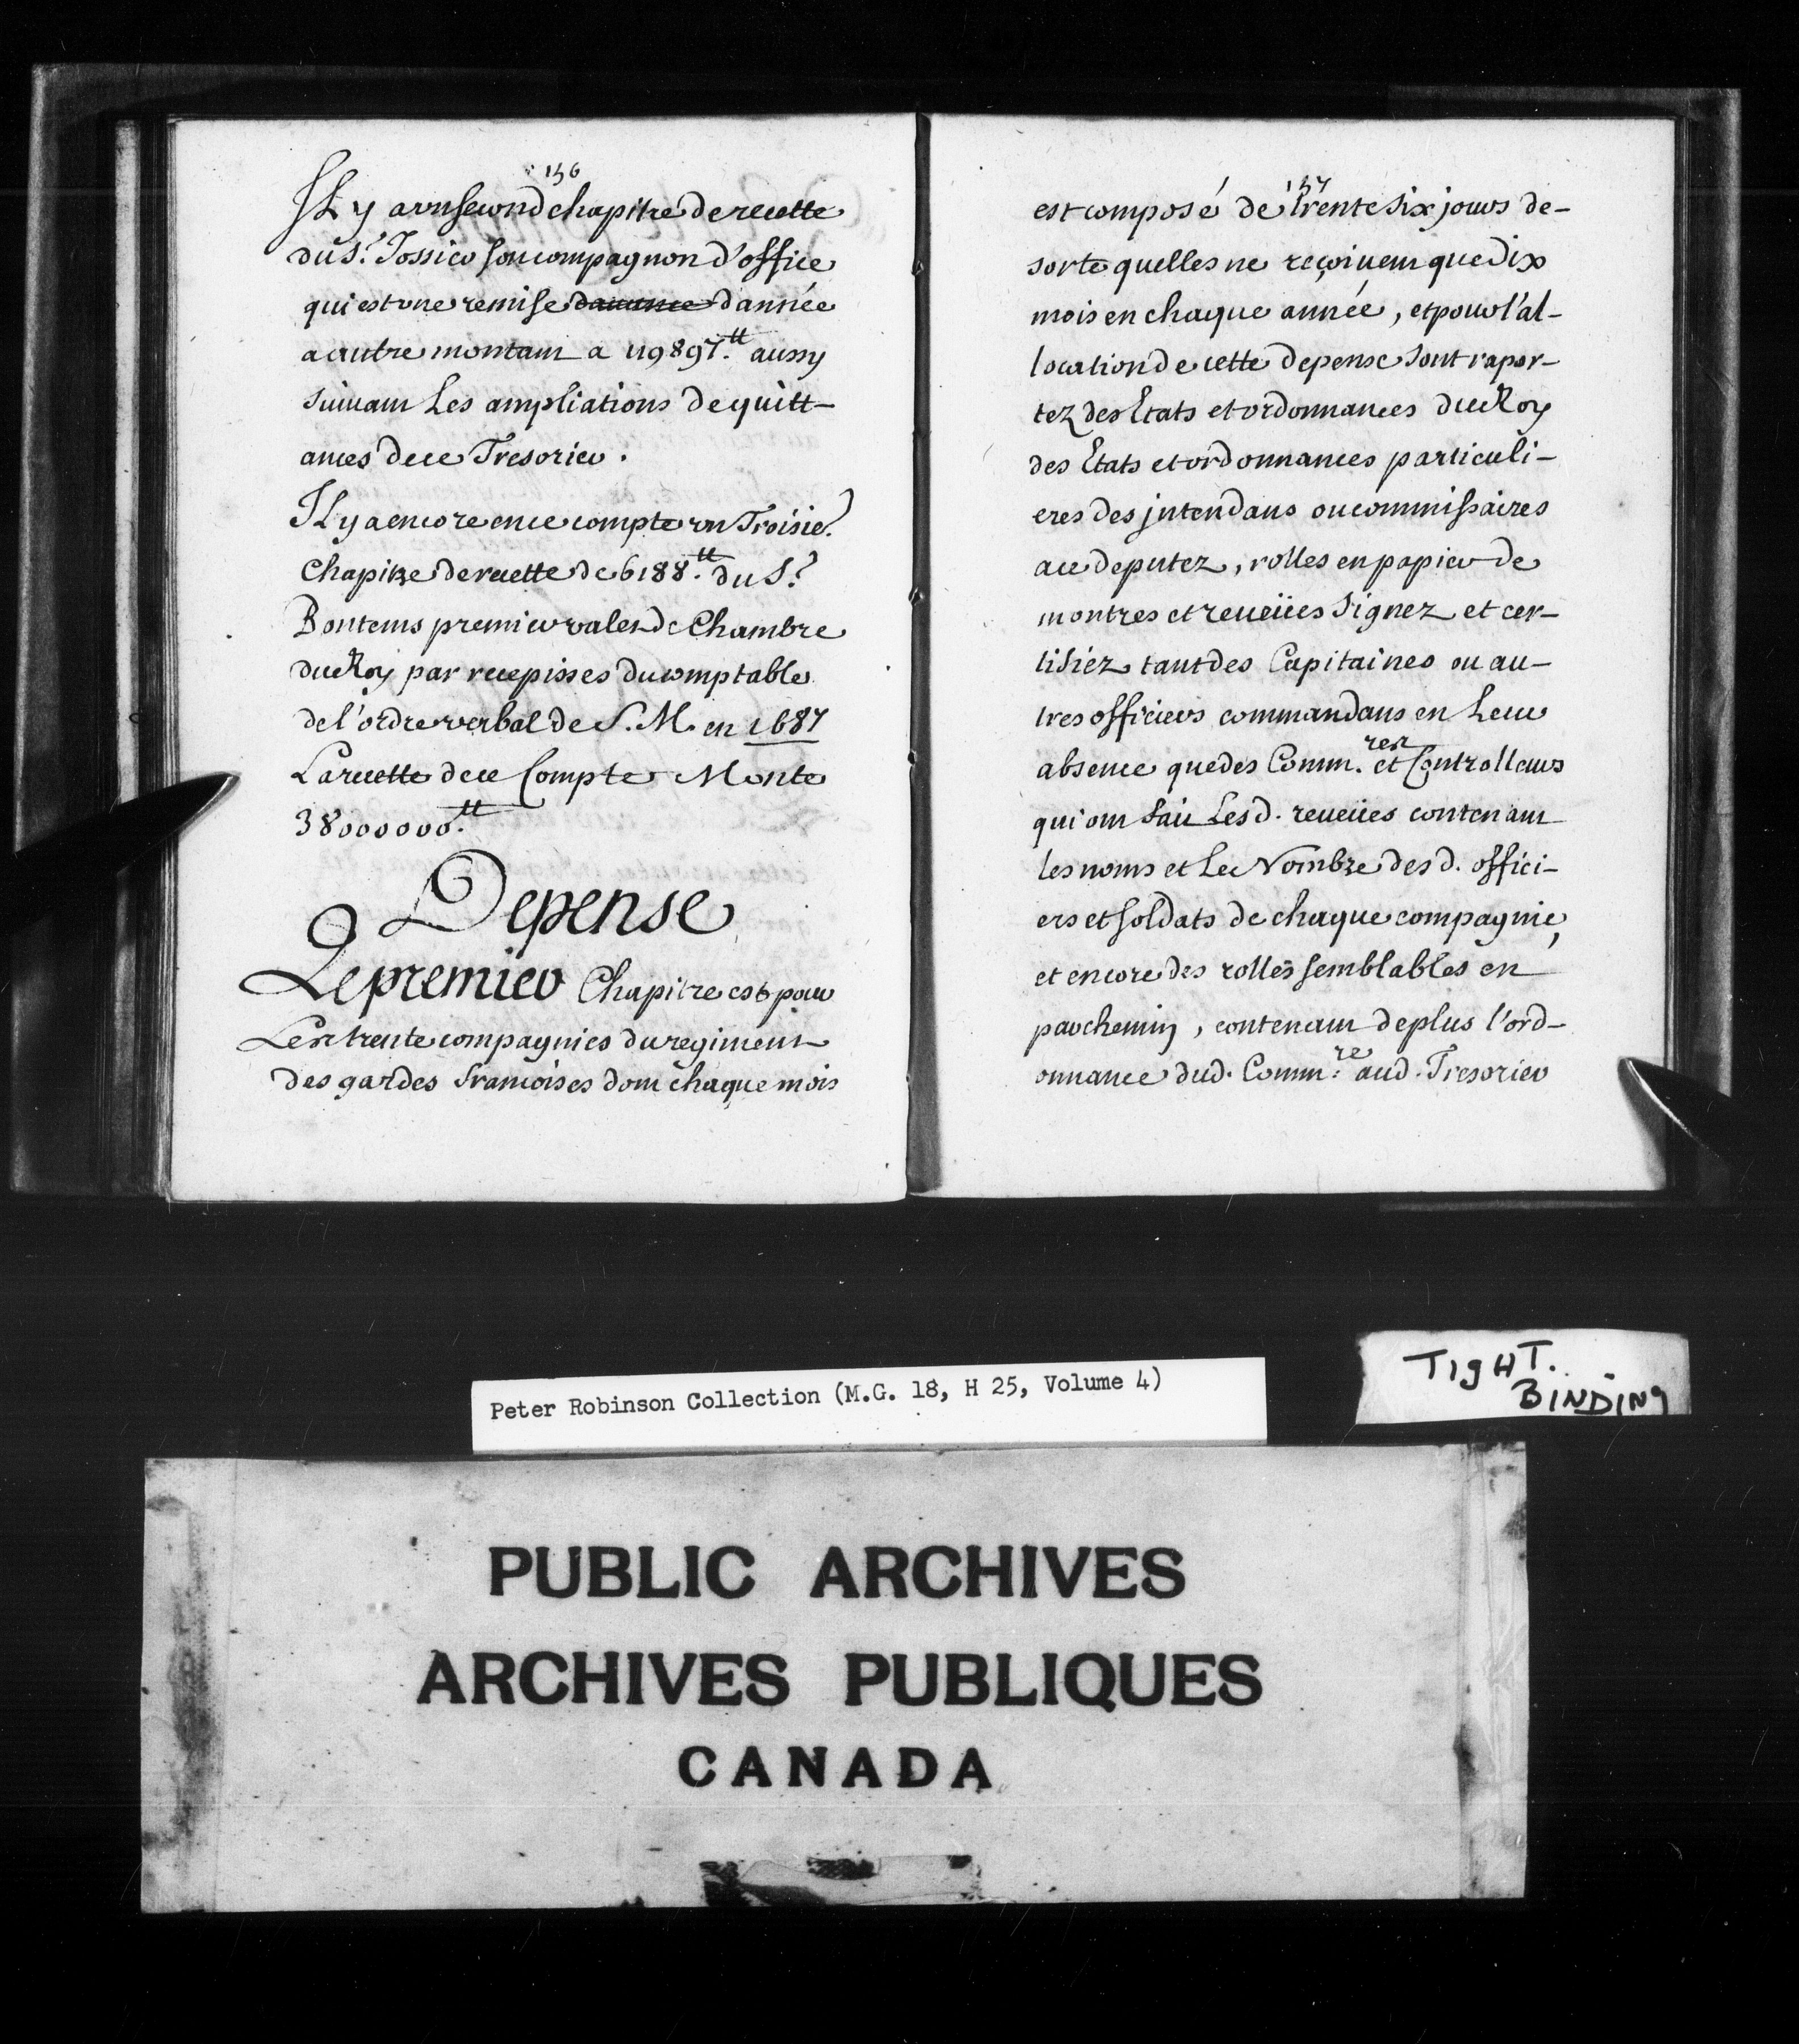 156
Il y a un second chapitre de recette
du Sr. Jossier son compagnon d'office
qui est une remise d'année
a autre montant a 119897.tt aussy
suivant Les ampliations de quitt-
ances de ce Tresorier.
Il y a encore en ce compte un Troisie.
Chapitre de recette de 6188.tt du Sr.
Bontems premier valet de Chambre
du Roy par recepisses du comptable
de l'ordre verbal de S. M. en 1687
La recette de ce Compte Monte
38000000.tt
Depense
Le premier Chapitre est pour
Les trente compagnies du regiment
des gardes francoises dont chaque mois
157
est composé de trente six jours de-
sorte quelles ne reçoivent que dix
mois en chaque année, et pour l'al-
location de cette depense sont rapor-
tez des Etats et ordonnances du Roy
des Etats et ordonnances particuli-
eres des jntendans ou commissaires
a ce deputez, rolles en papier de
montres et reveües signez et cer-
tifiez tant des Capitaines ou au-
tres officiers commandans en Leur
absence que des Comm.res et Controlleurs
qui ont fait Lesd. reveües contenant
les noms et Le Nombre desd. offici-
ers et soldats de chaque compagnie,
et encore des rolles semblables en
parchemin, contenant de plus l'ord-
onnance dud. Comm.re aud. Tresorier
Peter Robinson Collection (M.G. 18, H 25, Volume 4)
TIGHT.
BINDING
PUBLIC ARCHIVES
ARCHIVES PUBLIQUES
CANADA